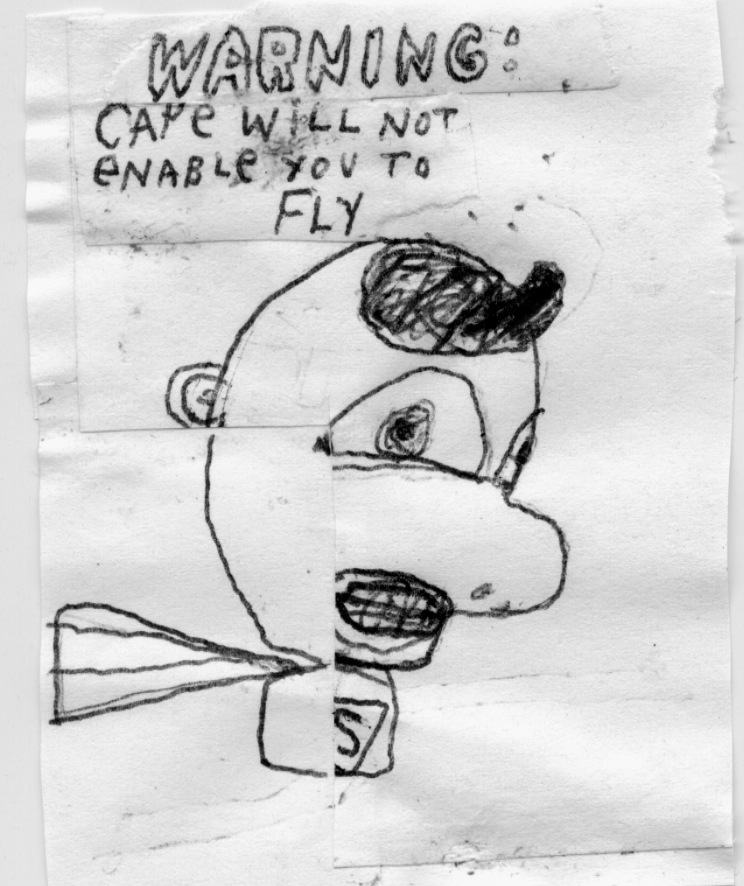 WARNING:
CAPe WiLL NOT
eNABLe YOU TO
FLY
S